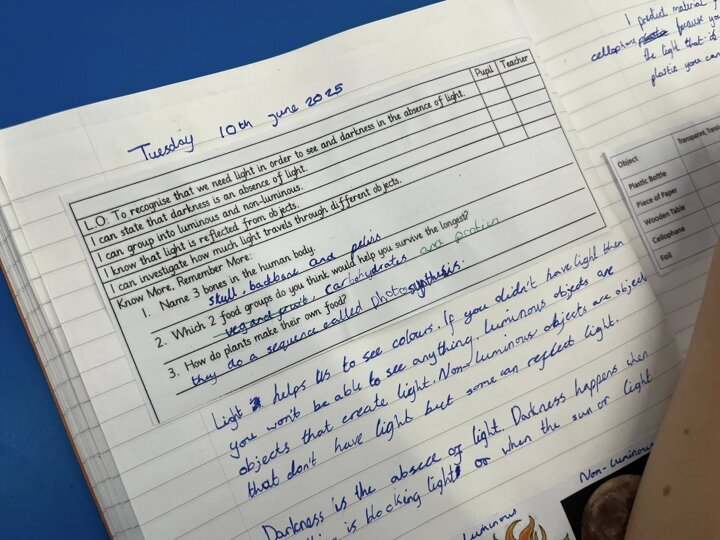 Tuesday 10th june 2025
Pupil Teacher
L.O: To recognise that we need light in order to see and darkness in the absence of light.
I can state that darkness is an absence of light.
I can group into luminous and non-luminous.
I know that light is reflected from objects.
I can investigate how much light travels through different objects.
Know More, Remember More:
1. Name 3 bones in the human body.
skull, backbone and pelvis
2. Which 2 food groups do you think would help you survive the longest?
veg and fruit, carbohydrates and protien
3. How do plants make their own food?
they do a sequence called photosynthesis.
Light helps us to see colours. If you didn't have light then
you won't be able to see anything. luminous objects are
objects that create light. Non-luminous objects are object
that don't have light but some can reflect light.
Darkness is the absece of light Darkness happens when
is blocking light or when the sun or light
luminous
Non-luminous
I predict material
cellophane because you
the light that is
plastic you can
Object
Plastic Bottle
Piece of Paper
Wooden Table
Cellophane
Foil
Transparent,